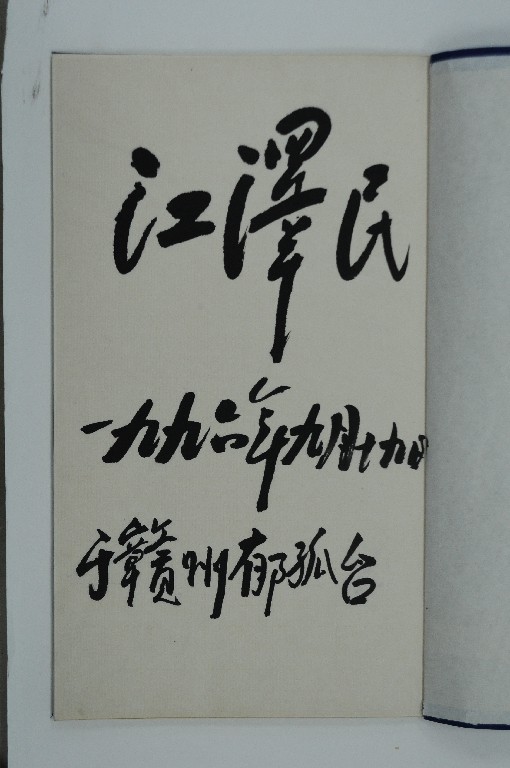 江澤民
一九九六年九月十九日
于赣州郁孤台